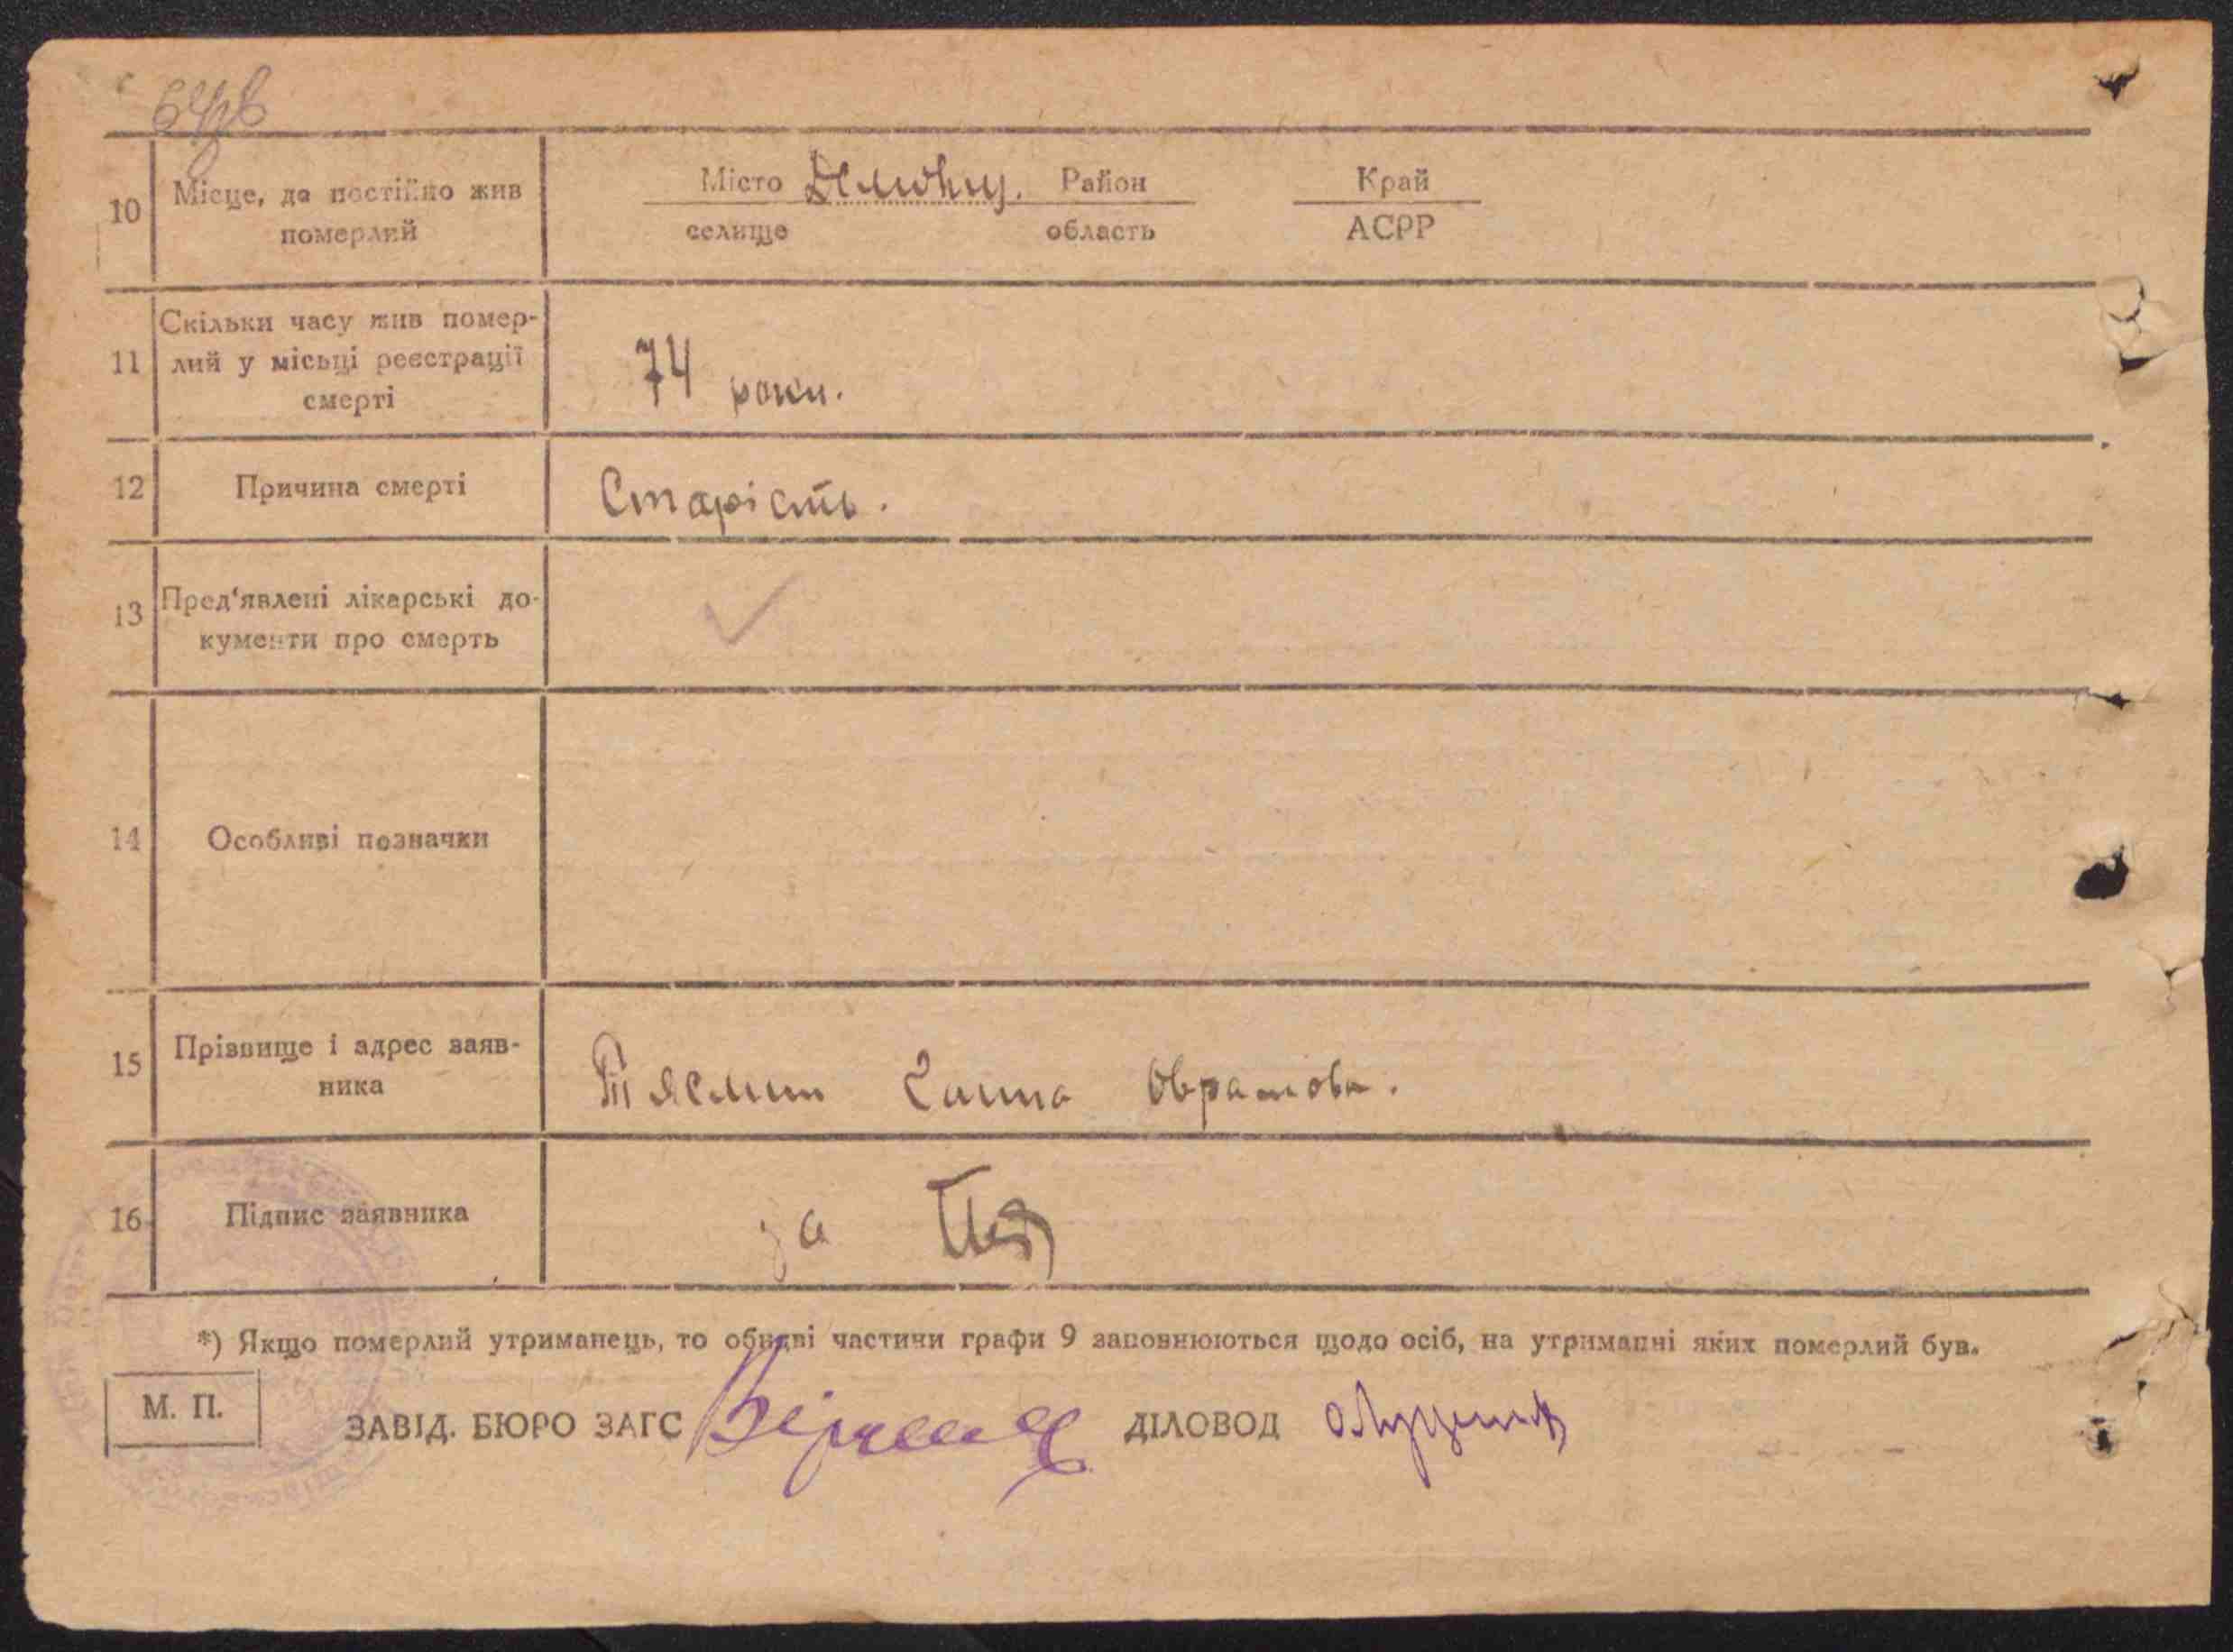 10 Місце, де постійно жив померлий
Місто Район Край
селище область АСРР
11 Скільки часу жив помер-
лий у місьці реєстрації
смерті
74 роки.
12 Причина смерті Старість.
13 Пред'явлені лікарські до-
кументи про смерть
14 Особливі позначки
15 Прізвище і адрес заяв-
ника
Ганна
16 Підпис заявника за
*) Якщо померлий утриманець, то обидві частини графи 9 заповнюються щодо осіб, на утриманні яких померлий був.
М. П.
ЗАВІД. БЮРО ЗАГС ДІЛОВОД